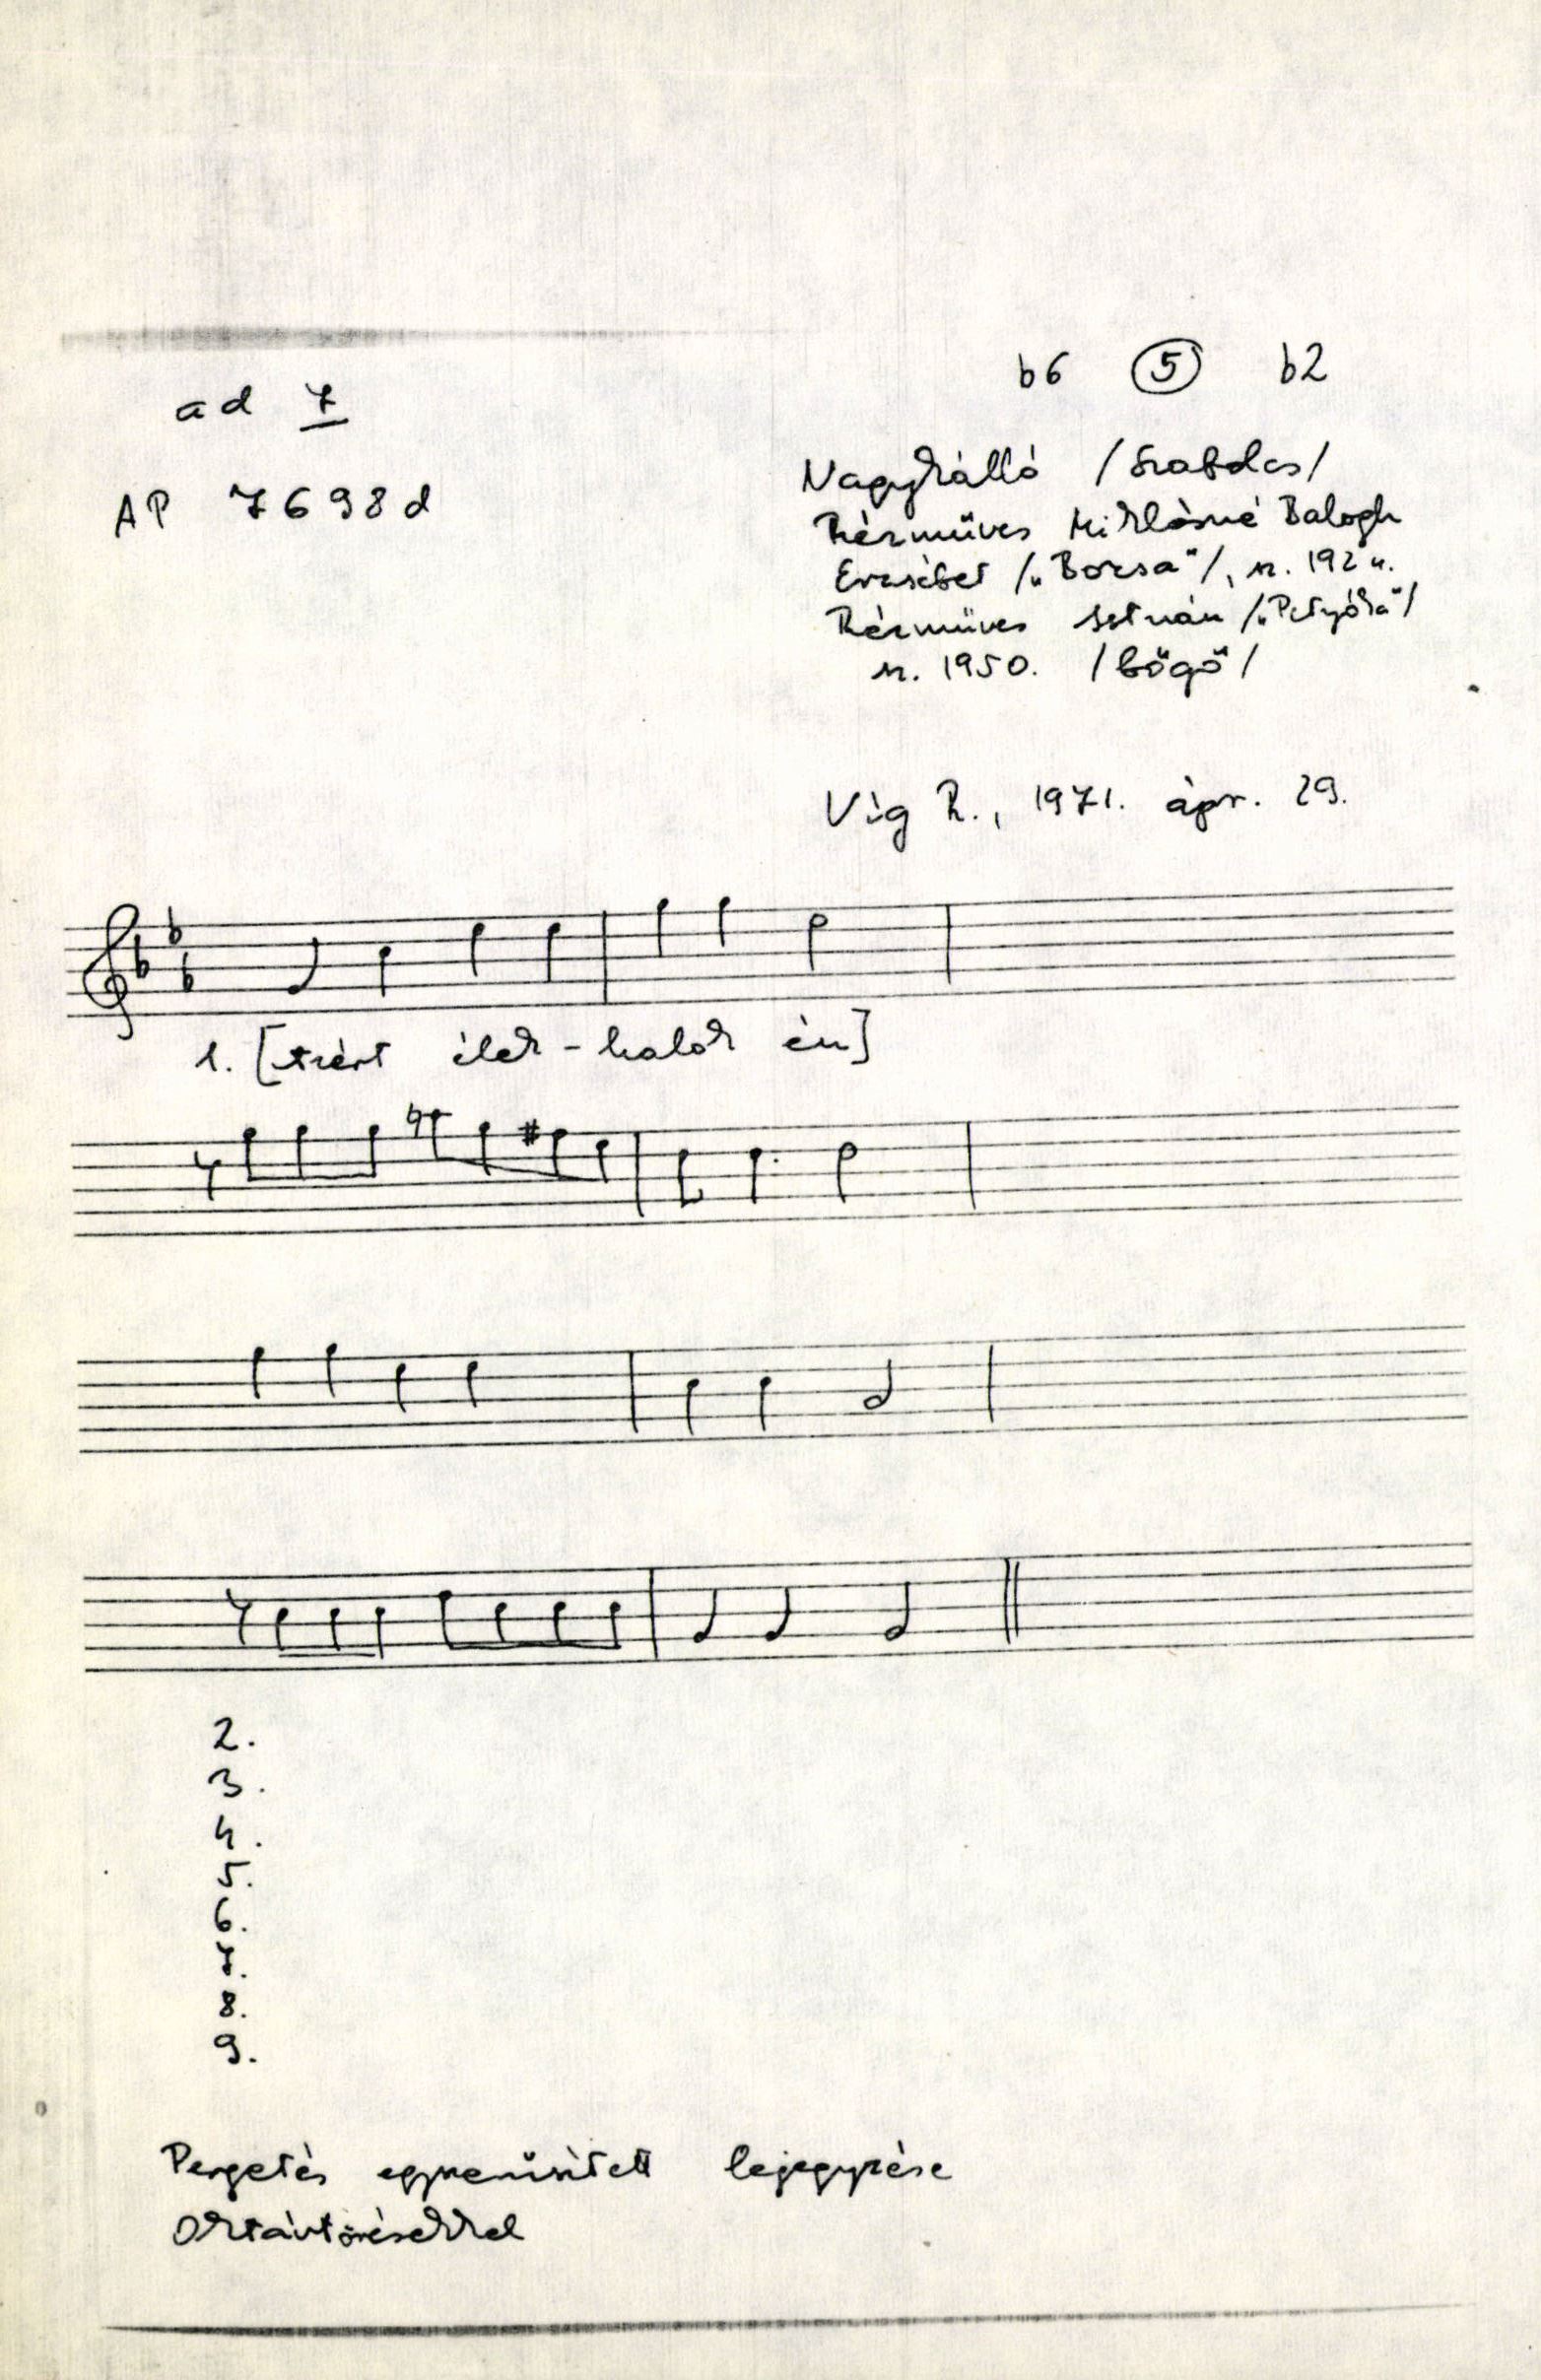 b6 5 b2
ad 7
AP 7698d
Nagykálló /Szabolcs/
Rézműves Miklósné Balogh
Erzsébet /„Borsa"/, sz. 192
Rézműves István /„Petyóka"/
sz. 1950. /bőgő/
Víg R., 1971. ápr. 29.
1. [ért élek-halok én]
2.
3.
4.
5.
6.
7.
8.
9.
Pergetés egyszerűsített lejegyzése
Oktávtörésekkel